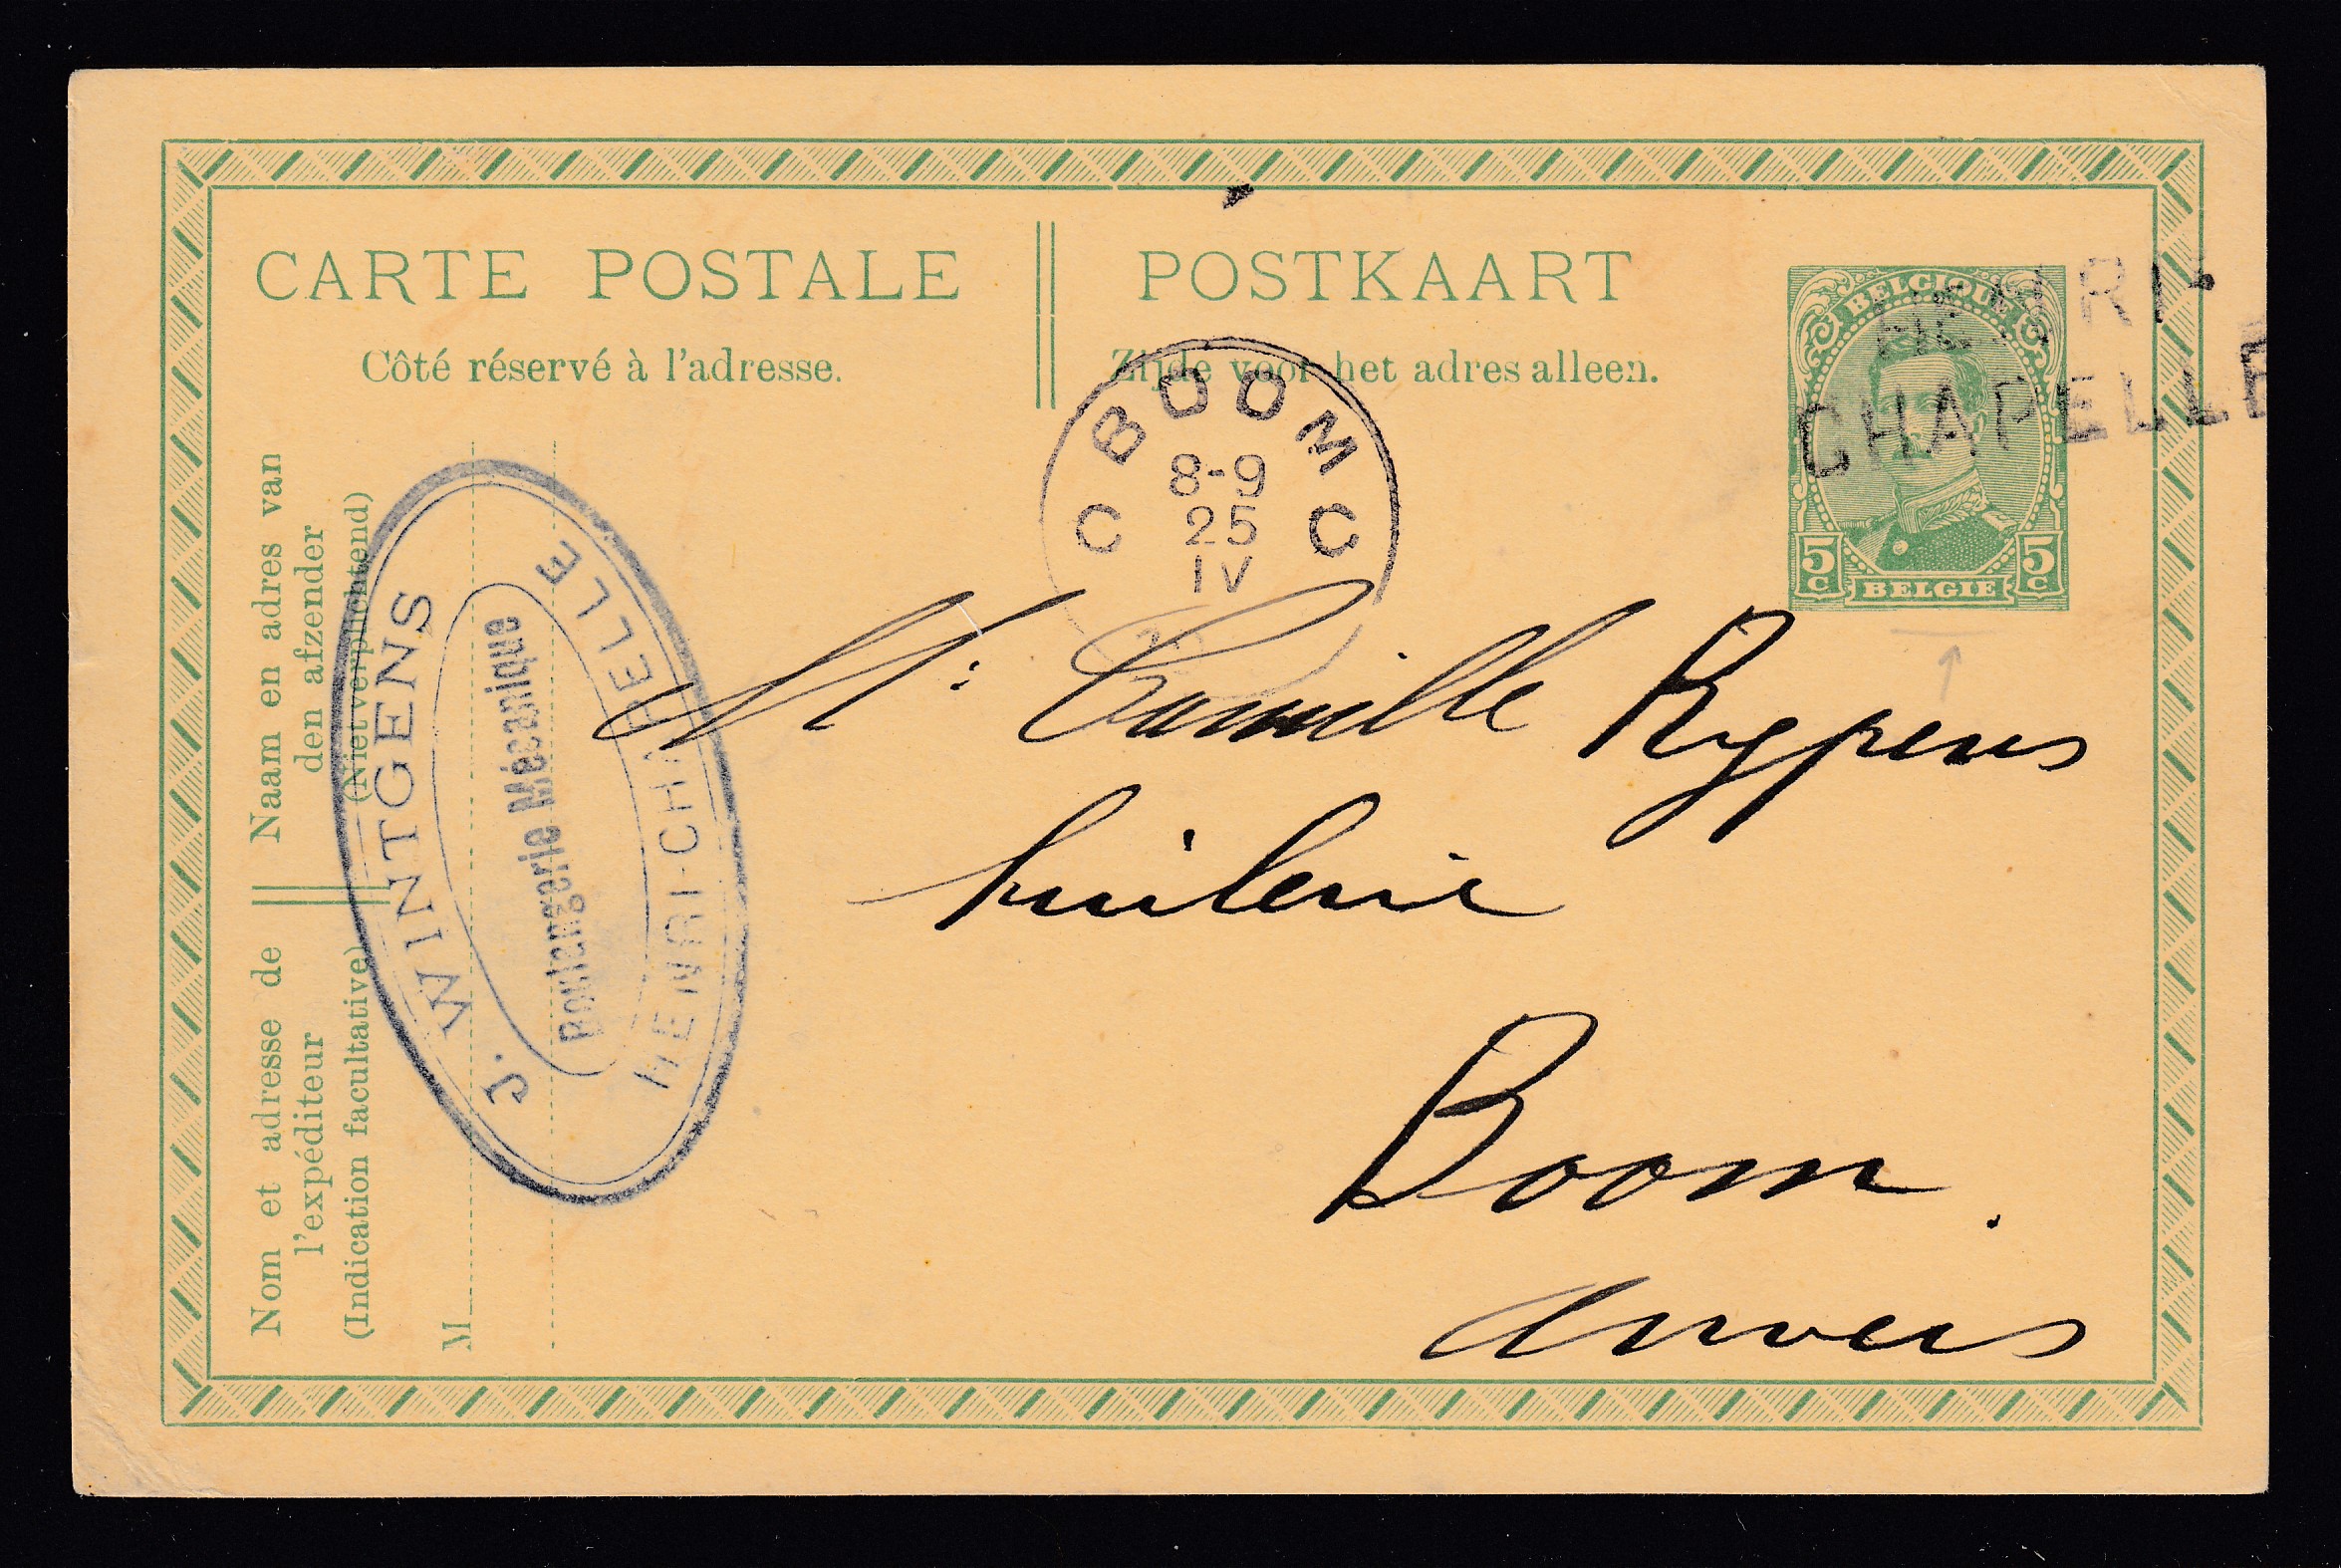 CARTE POSTALE
Côté réservé à l'adresse.
POSTKAART
Zijde voor het adres alleen.
BELGIQUE
5 C
BELGIE
5 C
HENRI-
CHAPELLE
BOOM
C C
8-9
25
IV
Naam en adres van
den afzender
(Niet verplichtend)
Nom et adresse de
l'expéditeur
(Indication facultative)
M
J. WINTGENS
Boulangerie Mécanique
HENRI-CHAPELLE
Mr Camille Rypens
huilerie
Boom.
Anvers